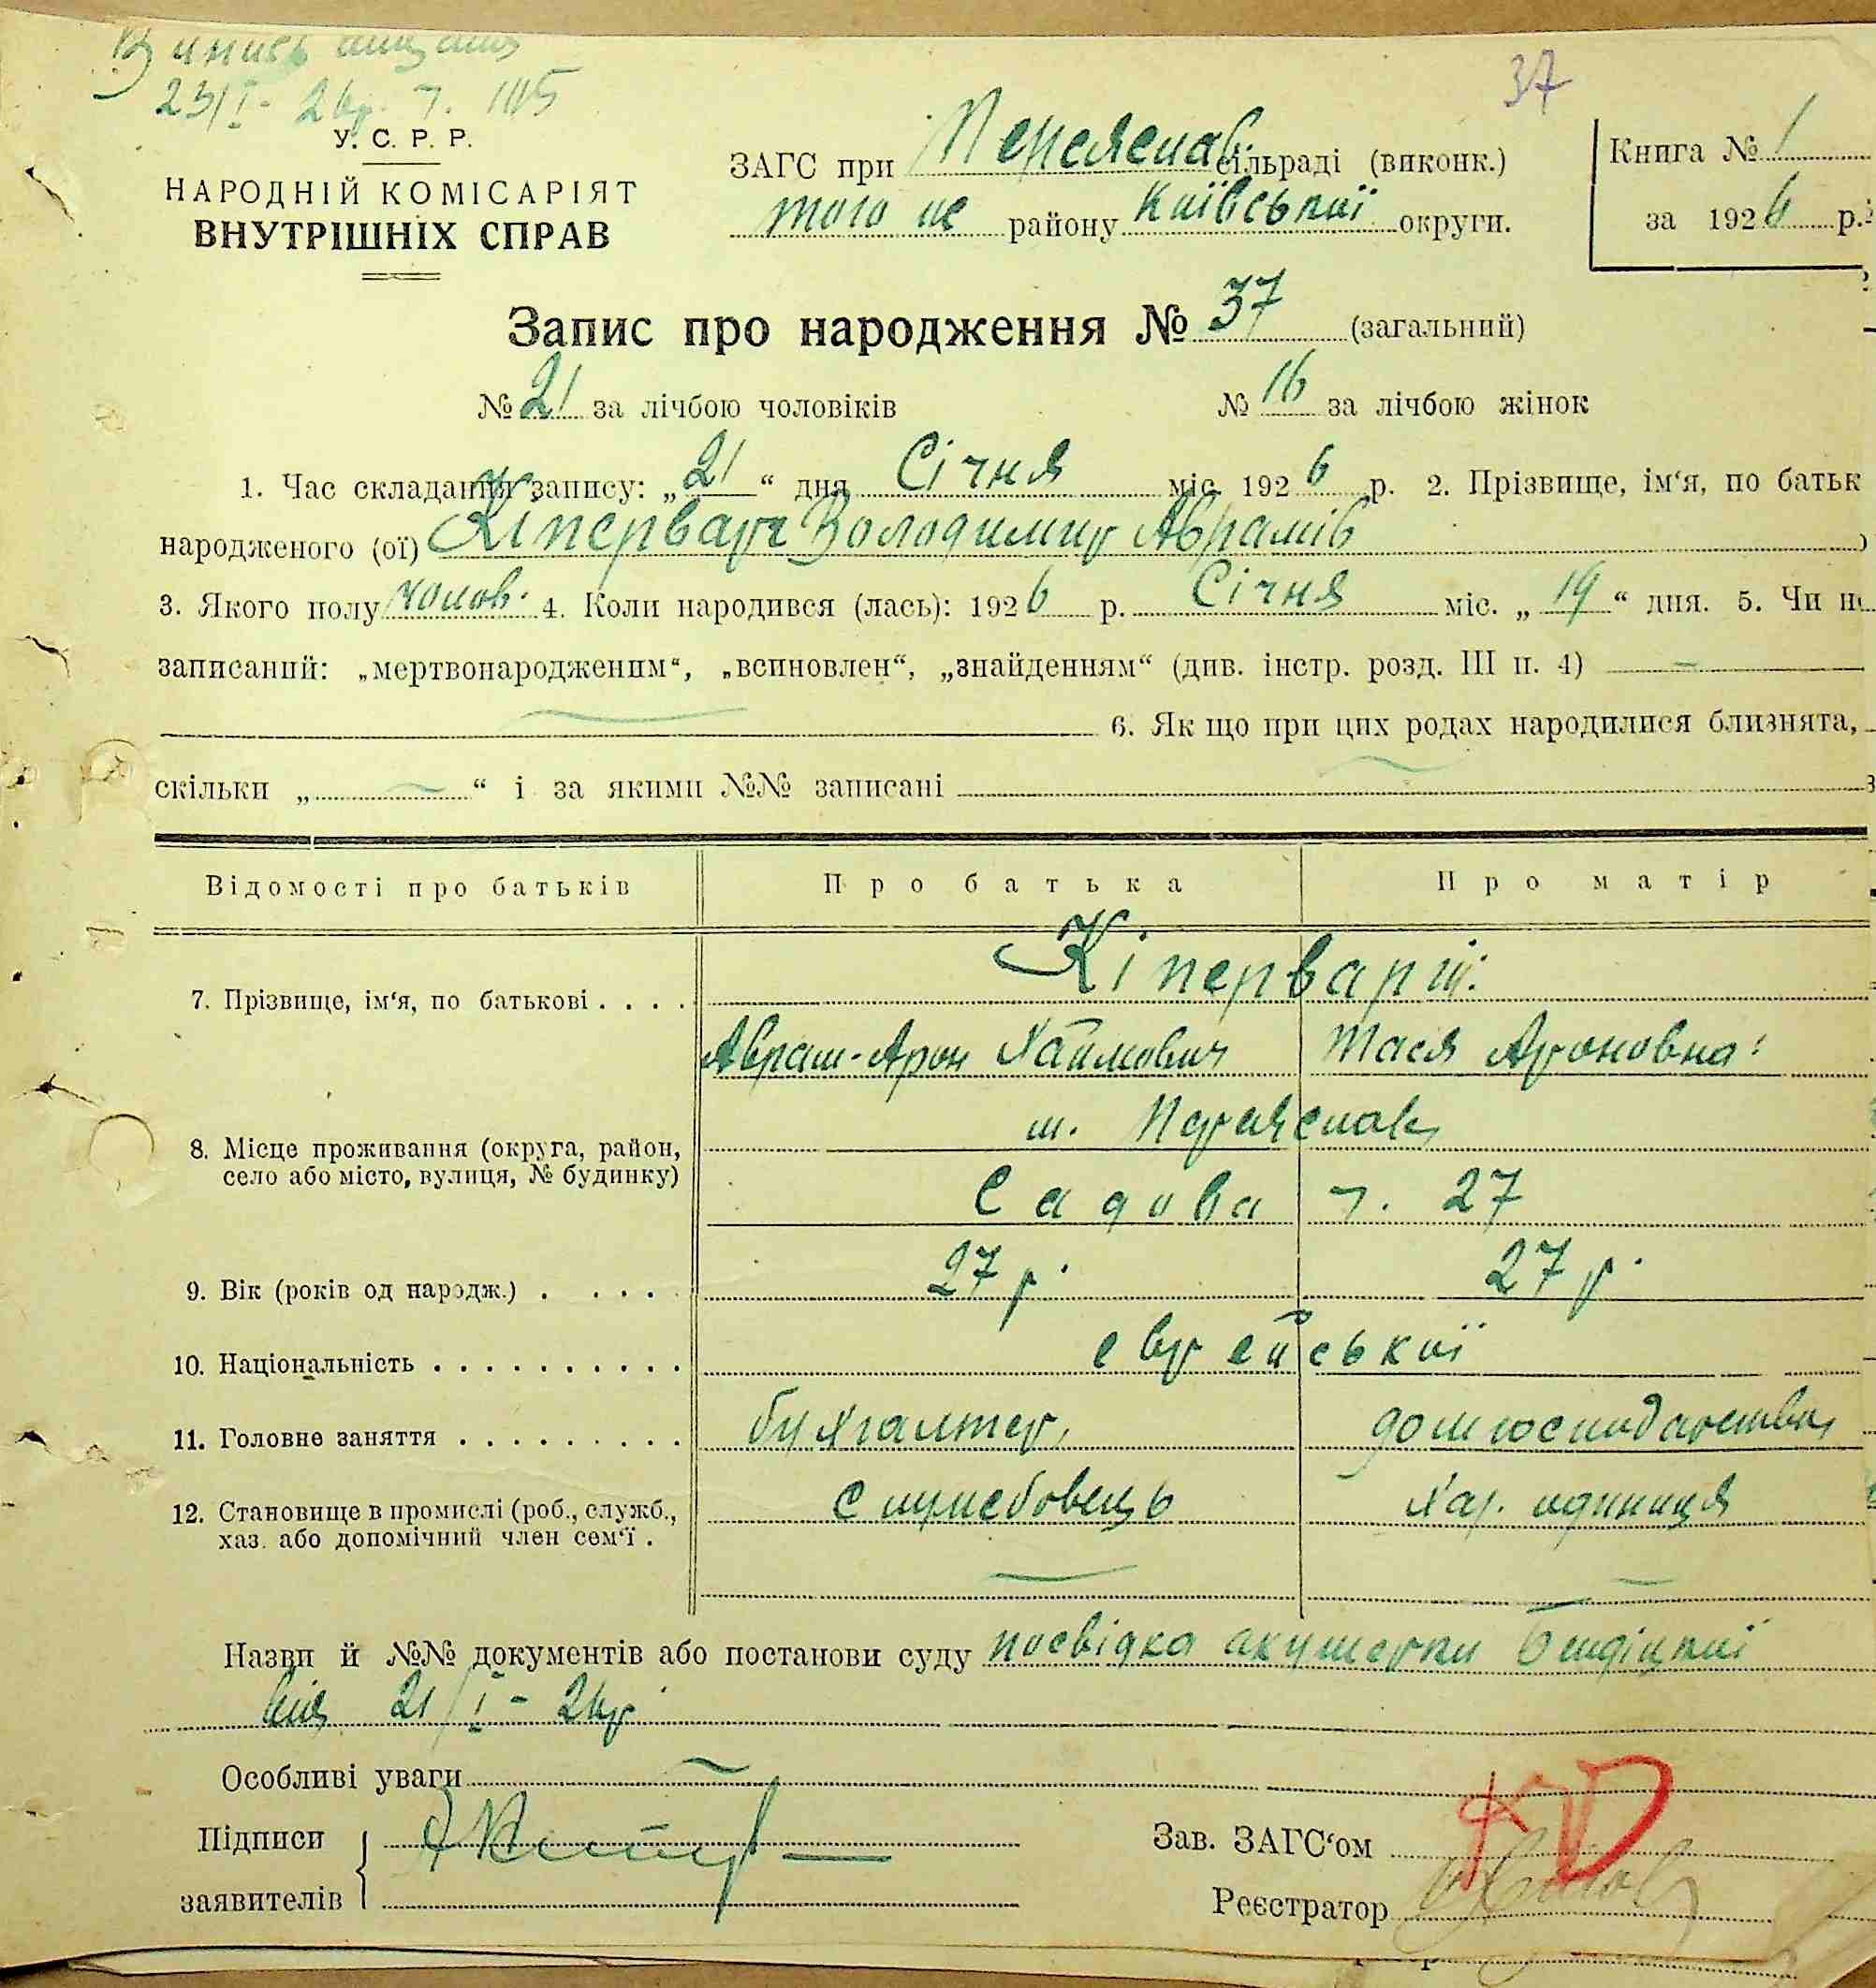 23/I - 26р. ч. 115
37
У. С. Р. Р.
НАРОДНІЙ КОМІСАРІЯТ
ВНУТРІШНІХ СПРАВ
ЗАГС при Переяслав. сільраді (виконк.)
того ж району Київської округи.
Книга № 1
за 1926 р.
Запис про народження № 37 (загальний)
№ 21 за лічбою чоловіків № 16 за лічбою жінок
1. Час складання запису: „21“ дня Січня міс. 1926 р. 2. Прізвище, ім‘я, по батьк
народженого (ої) Кіперварг Володимир Аврамів
3. Якого полу чолов. 4. Коли народився (лась): 1926 р. Січня міс. „19“ дня. 5. Чи не
записаний: „мертвонародженим“, „всиновлен“, „знайденням“ (див. інстр. розд. III п. 4) —
6. Як що при цих родах народилися близнята,
скільки „—“ і за якими №№ записані
Відомості про батьків Про батька Про матір
7. Прізвище, ім‘я, по батькові . . . . Кіперварги.
Аврам-Арон Хаймович Тася Ароновна
8. Місце проживання (округа, район, м. Переяслав
село або місто, вулиця, № будинку) Садова ч. 27
9. Вік (років од народж.) . . . . . 27 р. 27 р.
10. Національність . . . . . . . . . . єврейської
11. Головне заняття . . . . . . . . . бухгалтер, домгосподарства
12. Становище в промислі (роб., служб., службовець хаз. одиниця
хаз. або допомічний член сем‘ї .
Назви й №№ документів або постанови суду посвідка акушерки
від 21/I - 26р
Особливі уваги —
Підписи
заявителів
Зав. ЗАГС‘ом
КД
Реєстратор